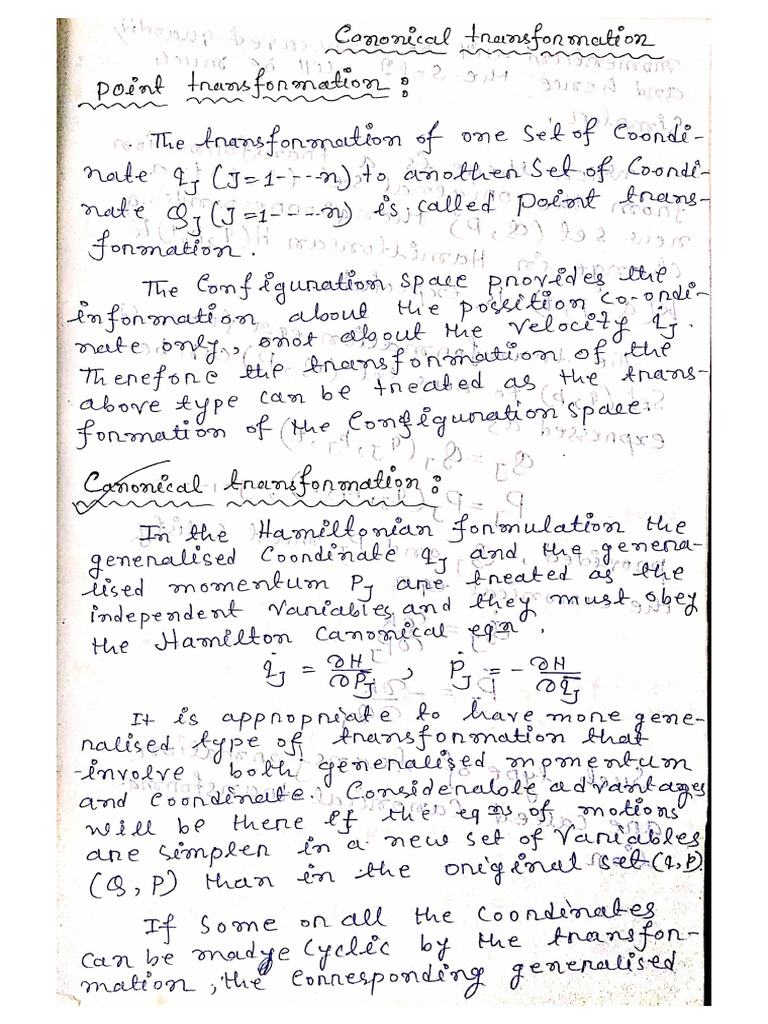 Canonical transformation
point transformation :
The transformation of one set of Coordi-
nate q_J (J=1----n) to another set of Coordi-
nate Q_J (J=1----n) is called point trans-
formation.
The Configuration space provides the
information about the possition co-ordi-
nate only, not about the velocity q̇_J.
Therefore the transformation of the
above type can be treated as the trans-
formation of the Configuration space.
Canonical transformation :
In the Hamiltonian formulation the
generalised Coordinate q_J and the genera-
lised momentum P_J are treated as the
independent variables and they must obey
the Hamilton Canonical eqn.
q̇_J = ∂H/∂P_J , Ṗ_J = - ∂H/∂q_J
It is appropriate to have more gene-
ralised type of transformation that
involve both generalised momentum
and coordinate. Considerable advantages
will be there if the eqns of motions
are simpler in a new set of variables
(Q, P) than in the original set (q, p).
If some or all the coordinates
can be madye cyclic by the transfor-
mation, the corresponding generalised